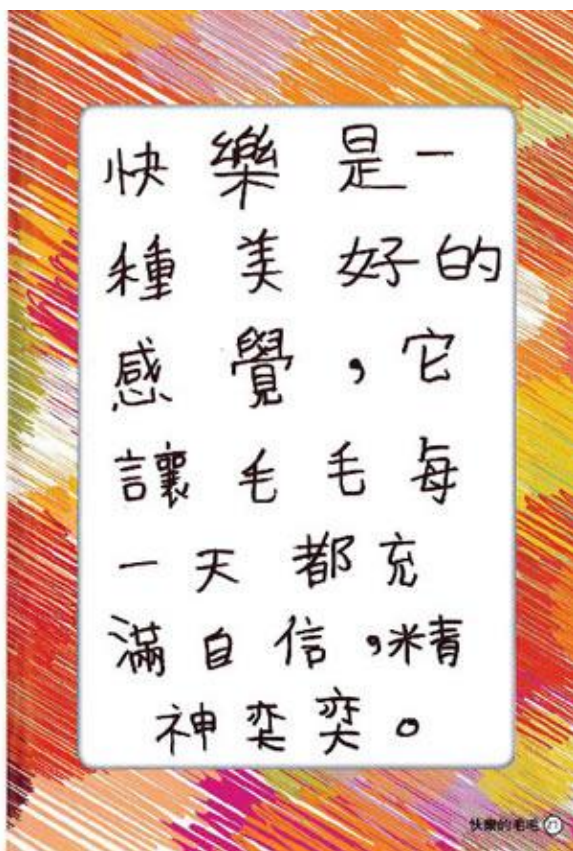 快樂是一
種美好的
感覺，它
讓毛毛每
一天都充
滿自信，精
神奕奕。
快樂的毛毛